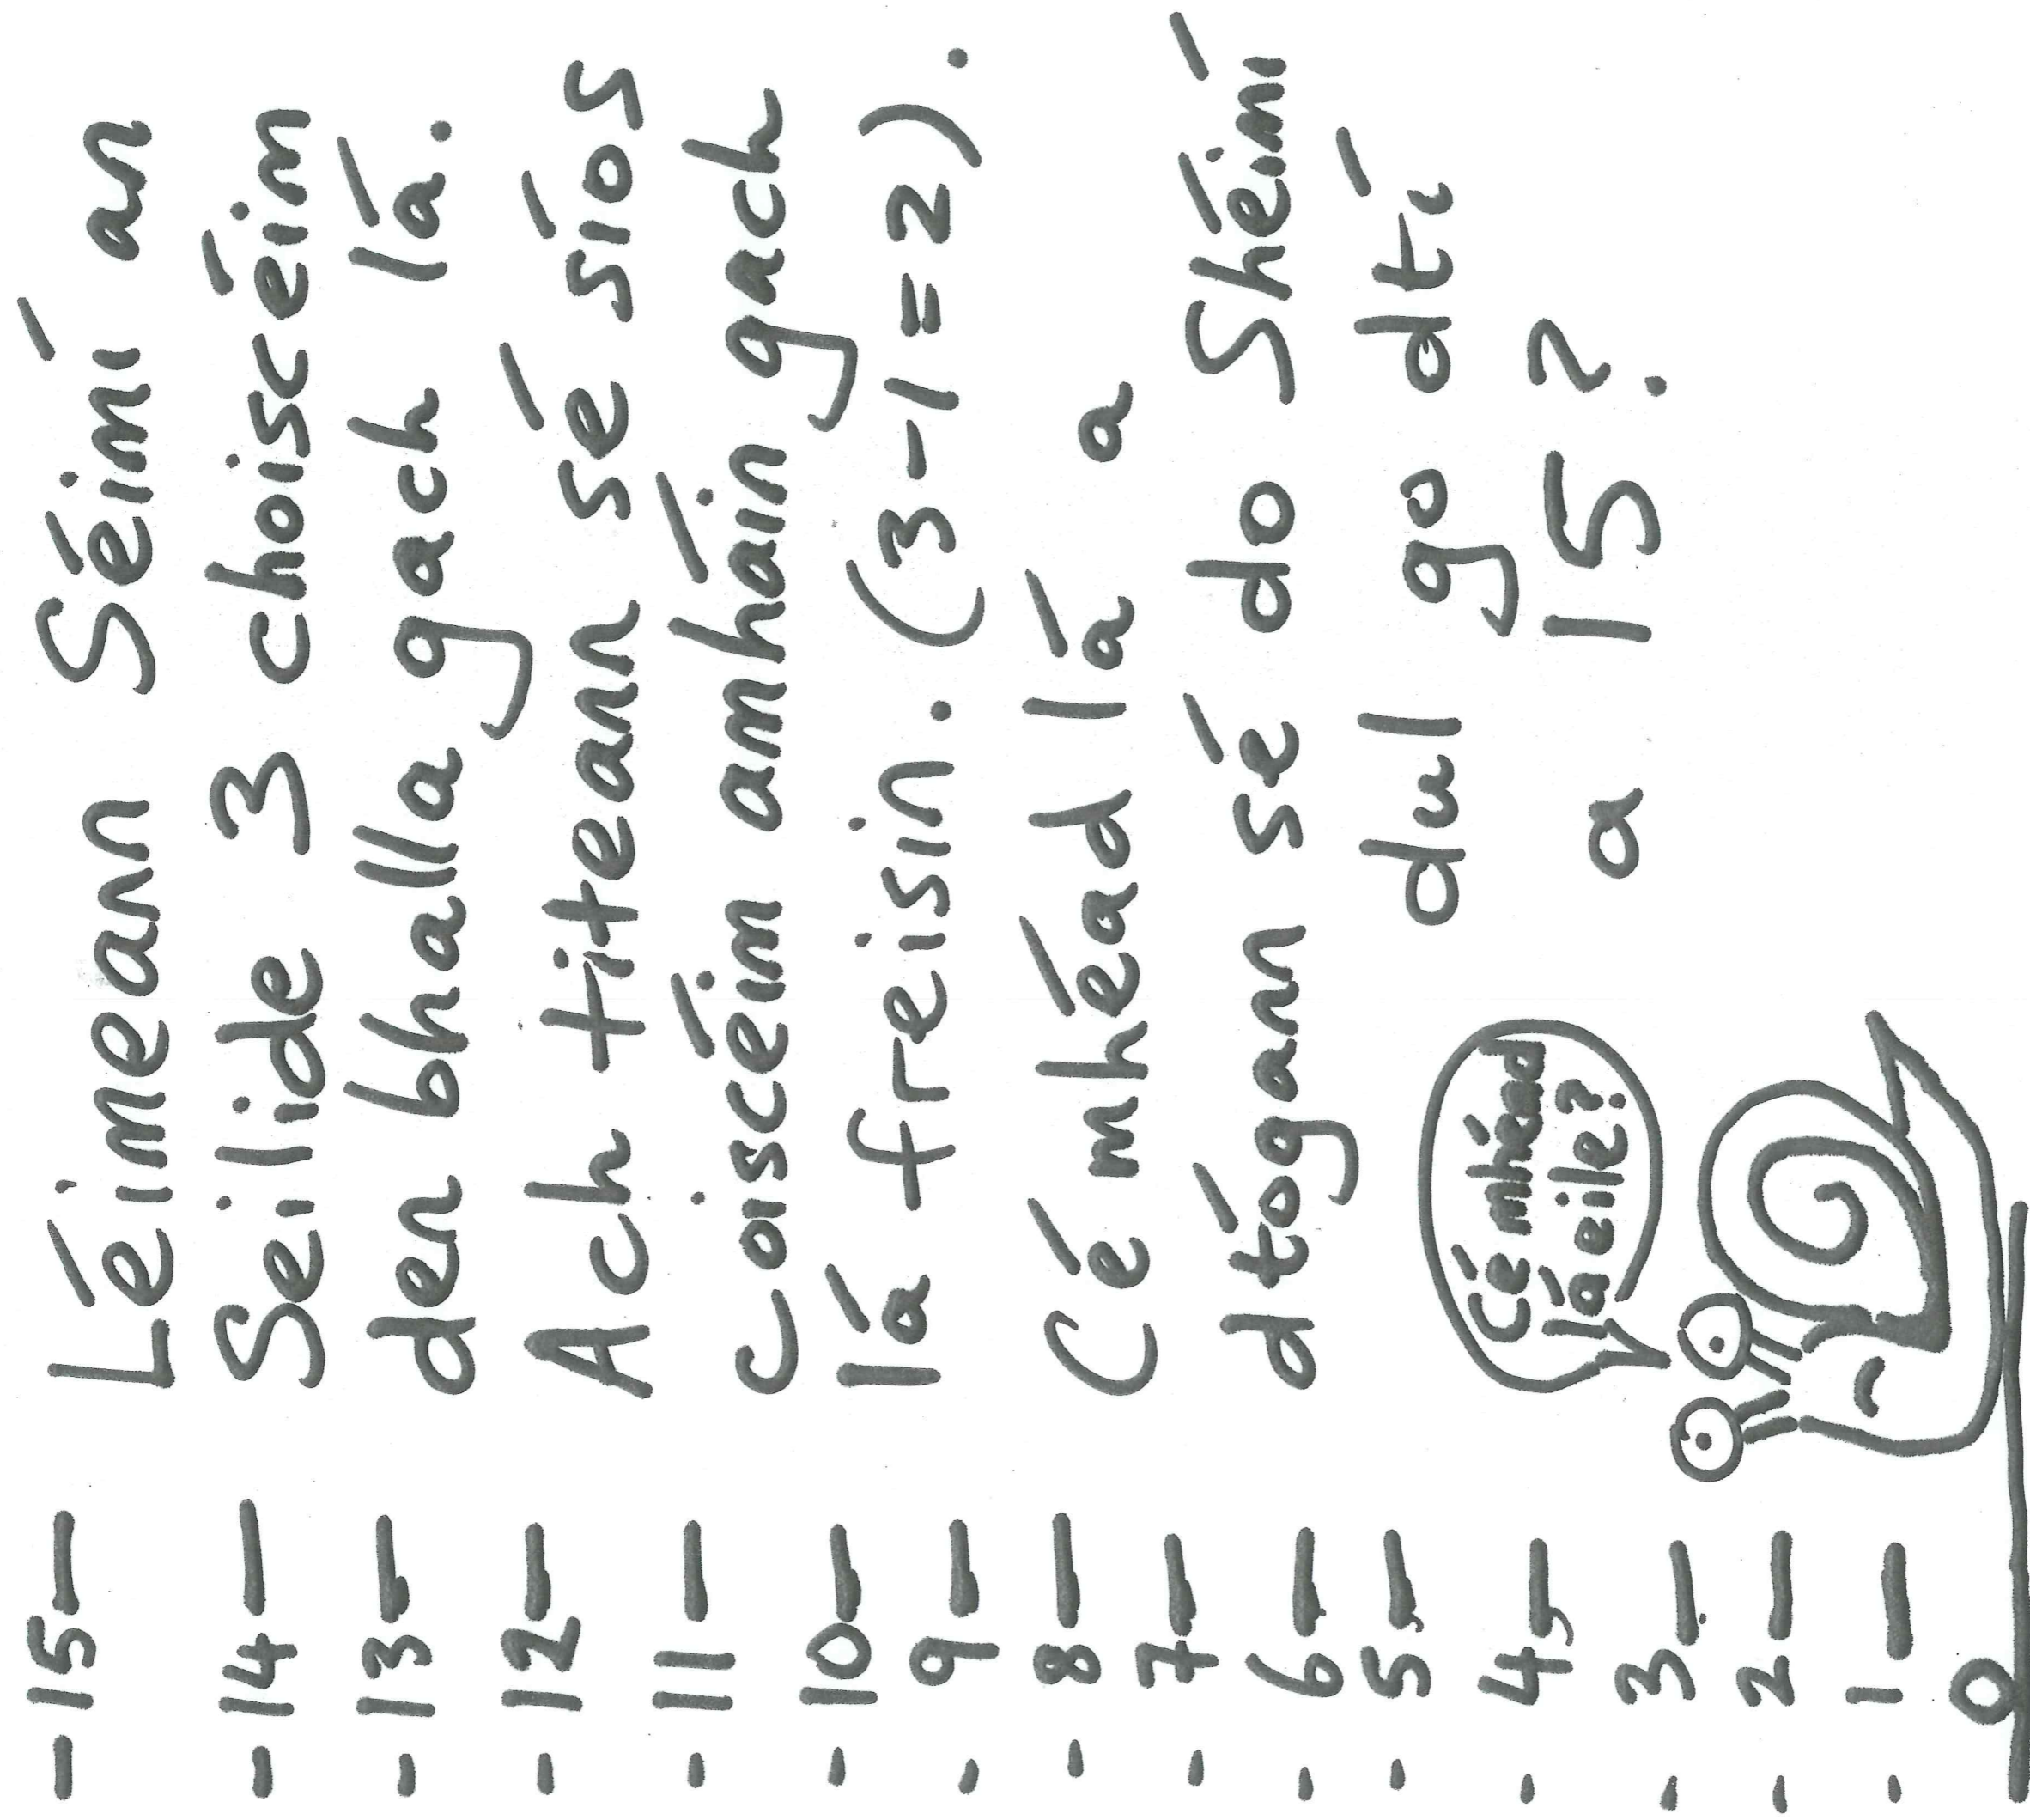 Léimeann Séimí an
Seilide 3 choiscéim
den bhalla gach lá.
Ach titeann sé síos
coiscéim amháin gach
lá freisin. (3-1=2).
Cé mhéad lá a
dtógann sé do Shéimí
dul go dtí
a 15?
Cé mhéad
lá eile?
-15-
-14-
-13-
-12-
-11-
-10-
-9-
-8-
-7-
-6-
-5-
-4-
-3-
-2-
-1-
0